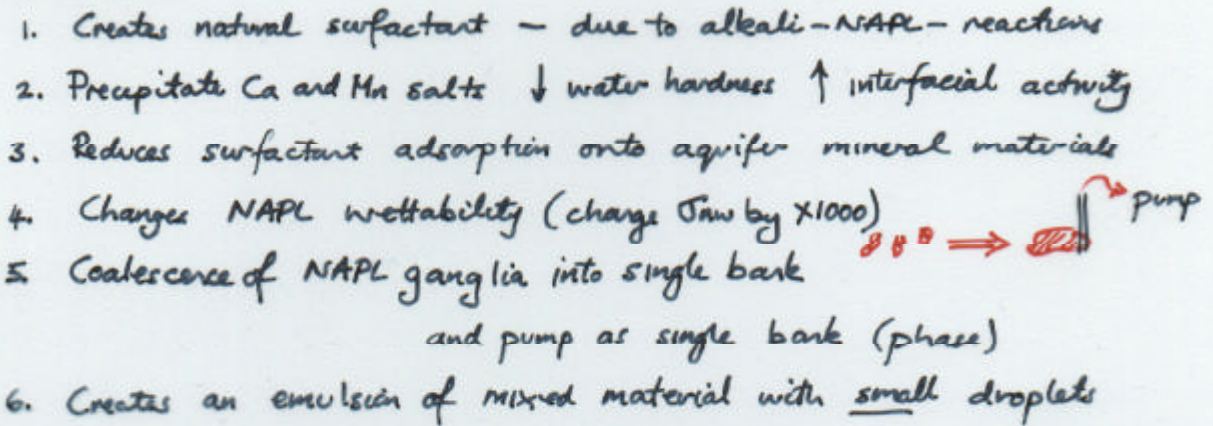 1. Creates natural surfactant – due to alkali-NAPL-reactions
2. Precipitate Ca and Mn salts ↓ water hardness ↑ interfacial activity
3. Reduces surfactant adsorption onto aquifer mineral materials
4. Changes NAPL wettability (change σnw by ×1000)
pump
5. Coalescence of NAPL ganglia into single bank
and pump as single bank (phase)
6. Creates an emulsion of mixed material with small droplets